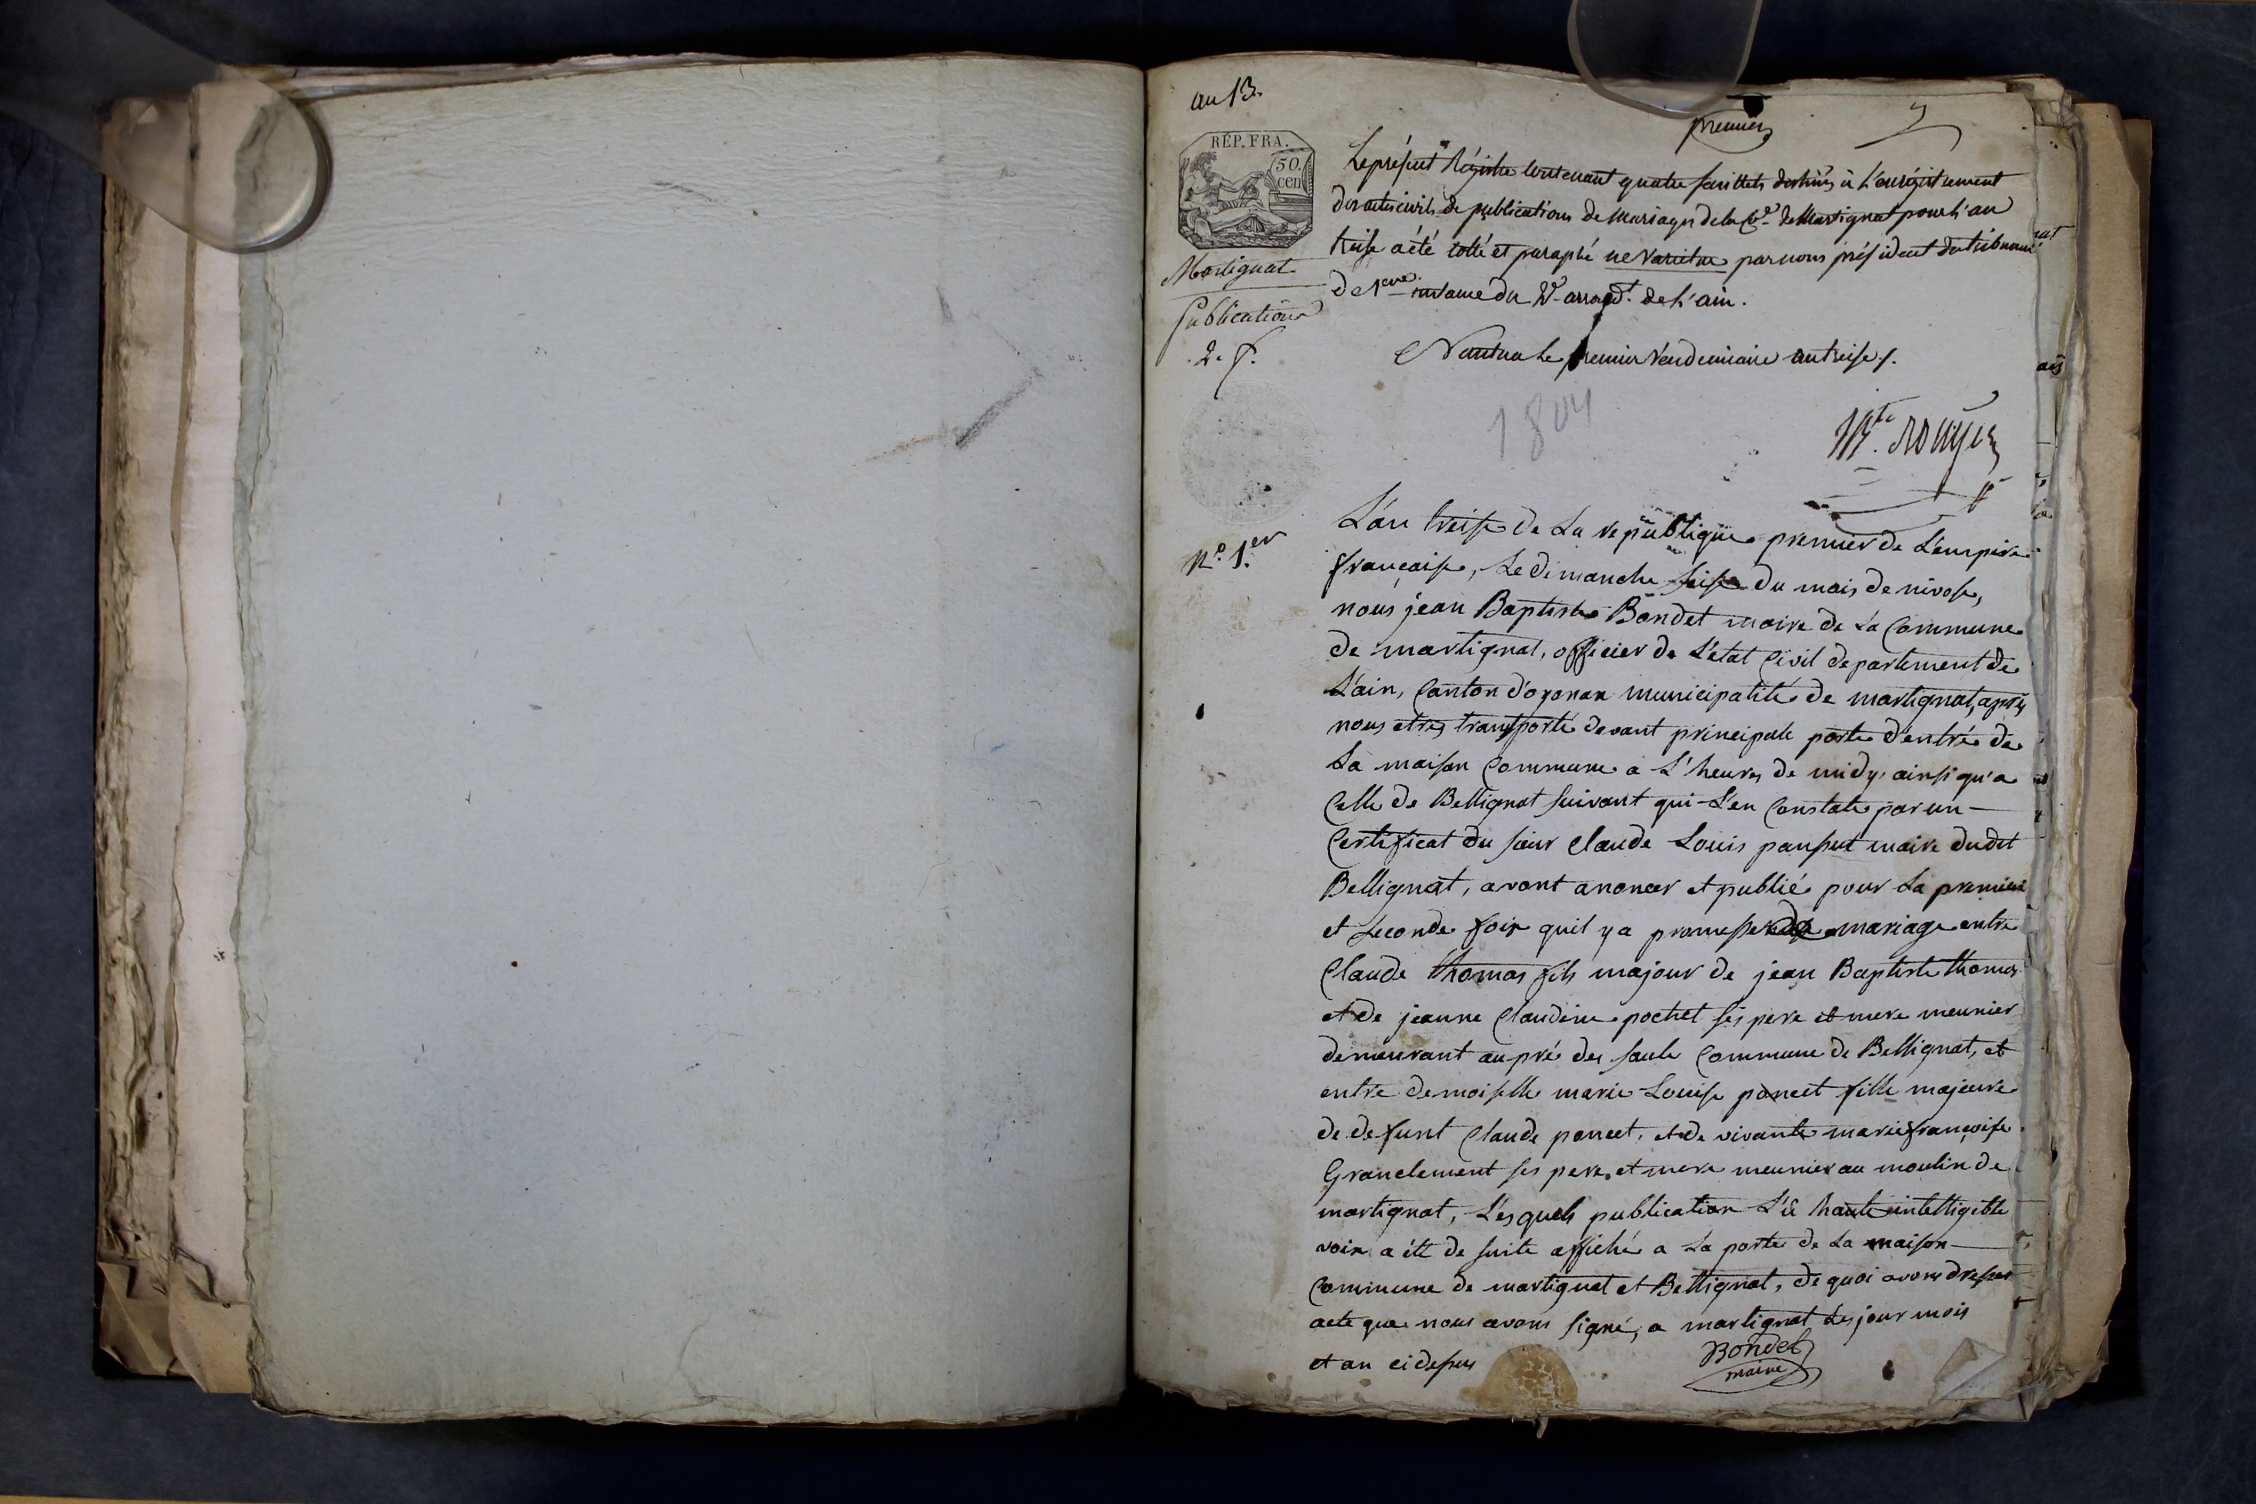 an 13.
premier
RÉP. FRA.
50.
cen
Le présent Régistre contenant quatre feuillets destinés à l'enrégistrement
des actes civils de publications de Mariages de la Cne. de Martignat pour l'an
treise a été cotté et paraphé ne varietur par nous président du tribunal
de 1ere. instance du 2e. arrondt. de l'ain.
Martignat
Publications
2. f.
Nantua le premier Vendemiaire an treise ./.
1804
Mte. rouyer
N.o 1.er
L'an treise de La republique premier de L'empire
française, Le dimanche seise du mois de nivose,
nous jean Baptiste Bondet maire de La Commune
de martignat, officier de L'etat Civil departement de
L'ain, Canton d'oyonax municipalité de martignat, après
nous etres transporté devant principale porte d'entré de
La maison Commune a L'heures de midy, ainsi qu'a
Celle de Bellignat suivant qui L'en Constate par un
Certificat du sieur Claude Louis panset maire dudit
Bellignat, avont anoncer et publié pour La premiere
et seconde fois quil y a promesse de mariage entre
Claude thomas fils majour de jean Baptiste thomas
et de jeanne Claudine pochet ses pere et mere meunier
demeurant au pré des saule Commune de Bellignat, et
entre demoiselle marie Louise poncet fille majeure
de defunt Claude poncet, et de vivante marie françoise
Granclement ses pere et mere meunier au moulin de
martignat, L'esquels publication L'û haute intelligible
voix a été de suite affiché a La porte de La maison
Commune de martignat et Bellignat, de quoi avons dresser
acte que nous avons signé, a martignat Les jour mois
et an ci desus
Bondet
maire